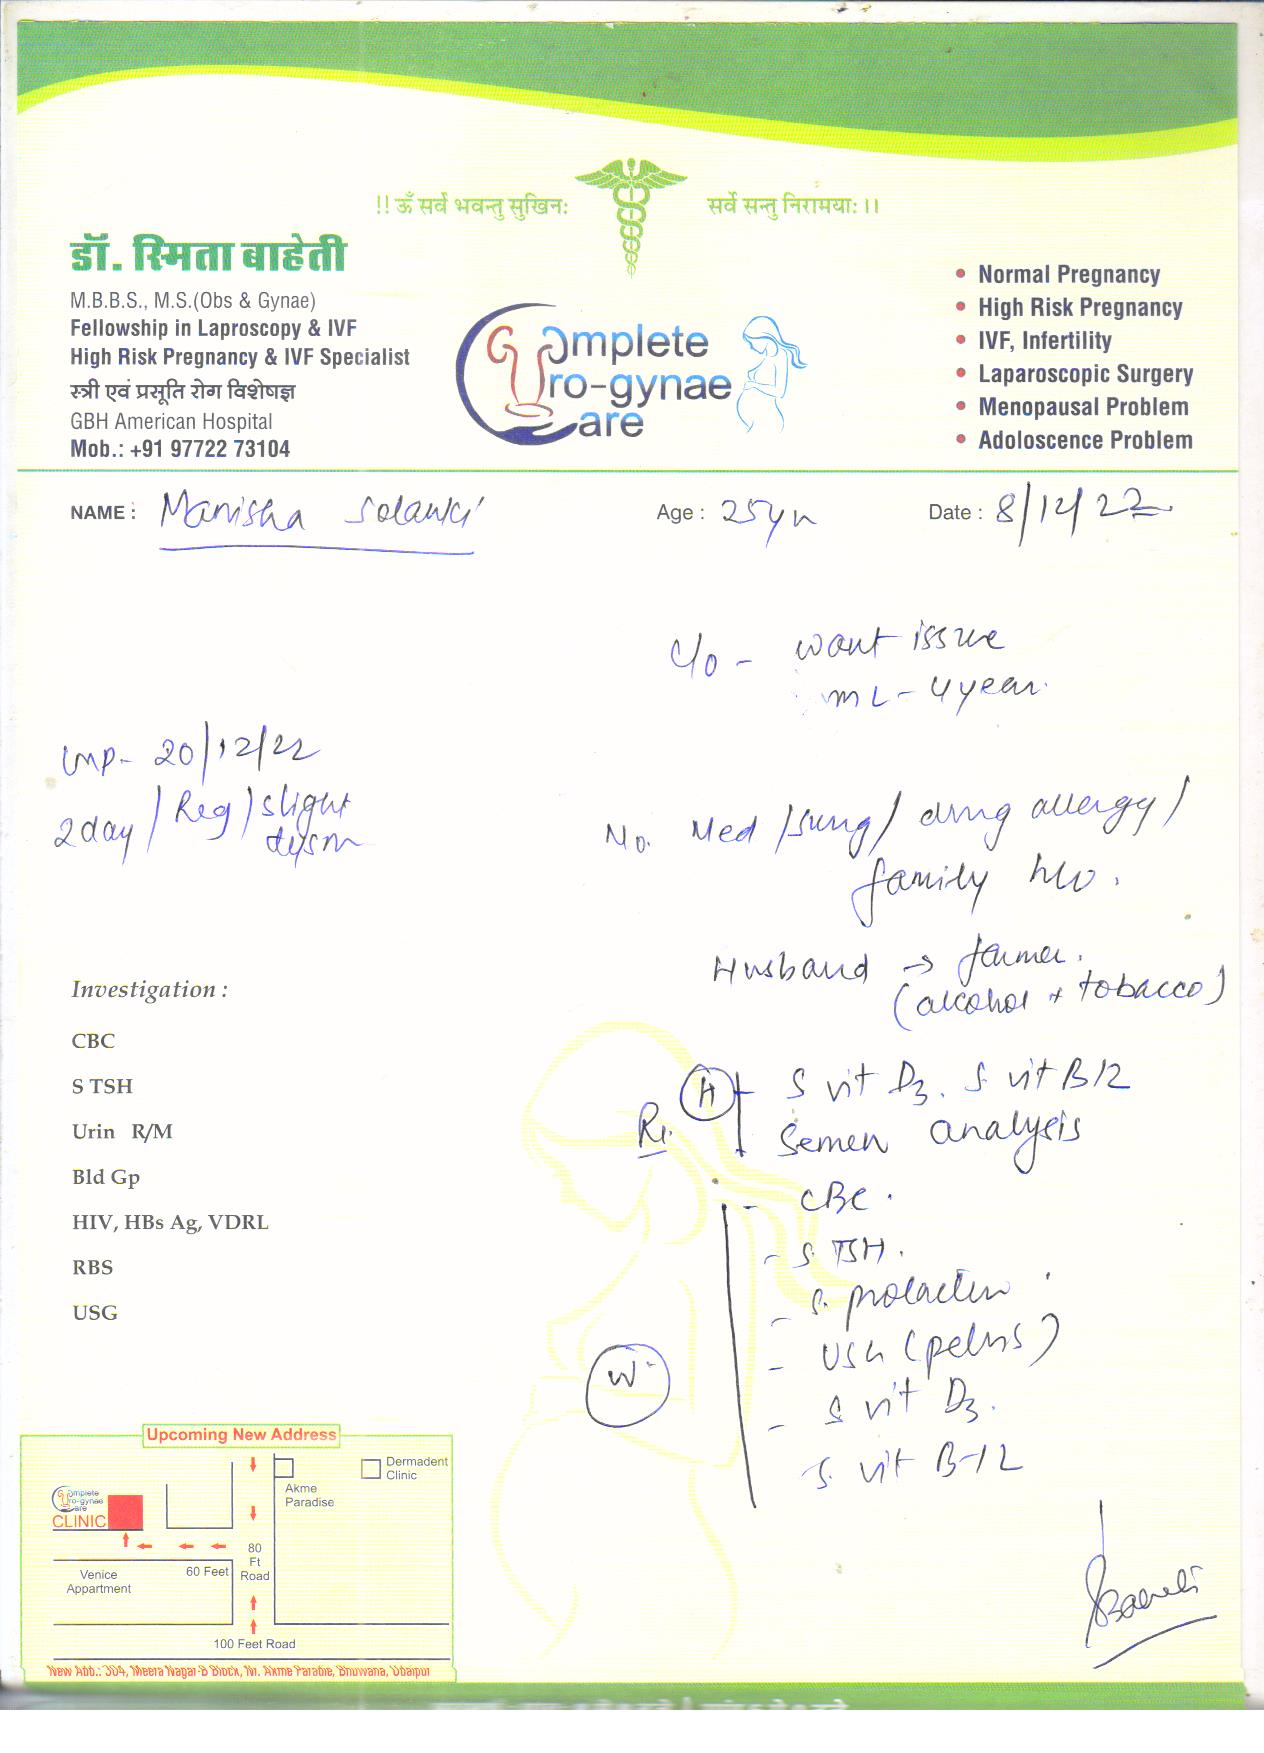 !! ॐ सर्वे भवन्तु सुखिनः सर्वे सन्तु निरामयाः ।।
डॉ. स्मिता बाहेती
M.B.B.S., M.S.(Obs & Gynae)
Fellowship in Laproscopy & IVF
High Risk Pregnancy & IVF Specialist
स्त्री एवं प्रसूति रोग विशेषज्ञ
GBH American Hospital
Mob.: +91 97722 73104
Complete
Uro-gynae
Care
• Normal Pregnancy
• High Risk Pregnancy
• IVF, Infertility
• Laparoscopic Surgery
• Menopausal Problem
• Adoloscence Problem
NAME : Manisha Solanki Age : 25yr Date : 8/12/22
c/o - want issue
ML - 4 year.
LMP - 20/12/22
2day / Reg / slight
dysm
No. Med / surg / drug allergy /
family h/o.
Husband → farmer.
(alcohol + tobacco)
Investigation :
CBC
S TSH
Urin R/M
Bld Gp
HIV, HBs Ag, VDRL
RBS
USG
Rx.
H - S vit D3. S. vit B12
Semen analysis
W
- CBC.
- S. TSH.
- S. prolactin
- USG (pelvis)
- S vit D3.
S. vit B-12
Upcoming New Address
Complete
Uro-gynae
Care
CLINIC
Akme
Paradise
Dermadent
Clinic
80
Ft
Road
60 Feet
Venice
Appartment
100 Feet Road
New Add.: 304, Meera Nagar-B Block, Nr. Akme Paradie, Bhuwana, Udaipur